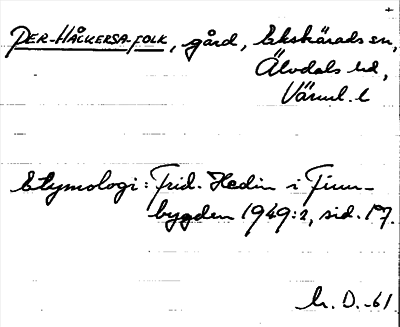 PER-HÅKERSA-FOLK, gård, Ekshärads sn,
Älvdals hd,
Värml. l
Etymologi: Frid. Hedin i Finn-
bygden 1949:2, sid. 17.
D. -61